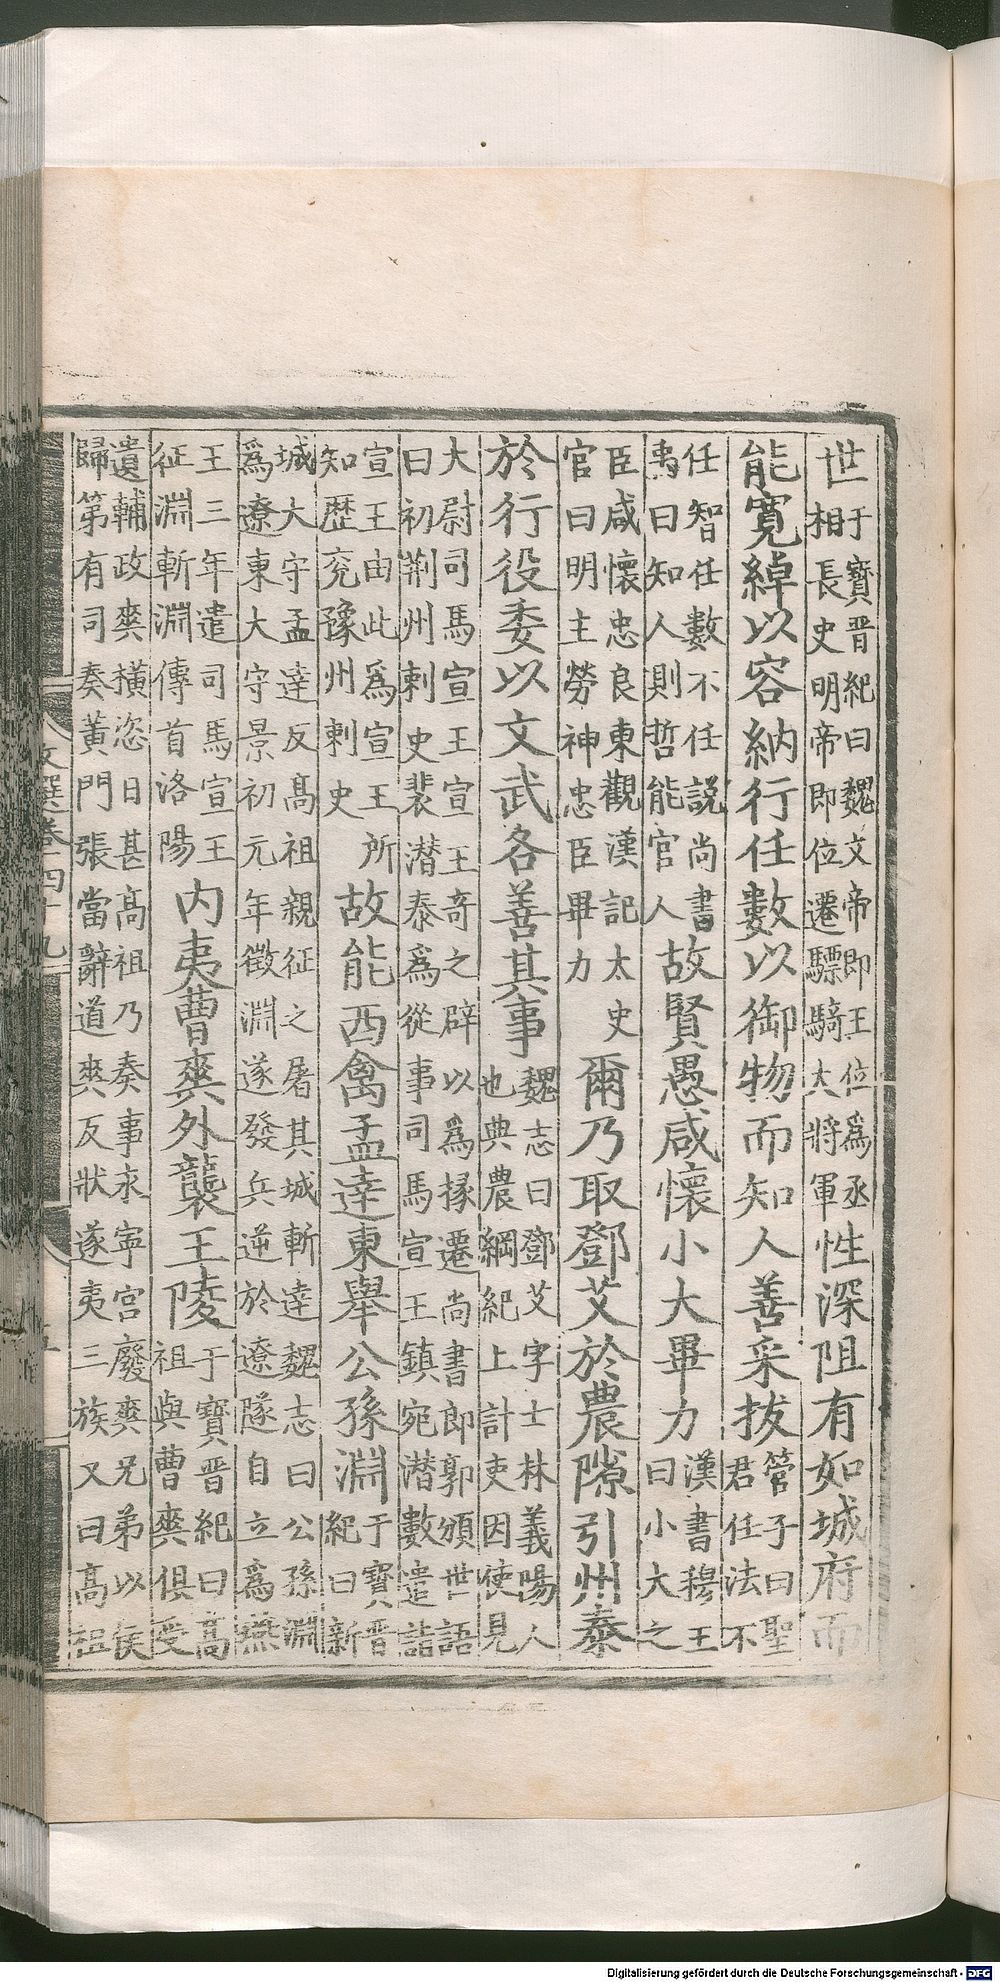 世于寶晋紀曰魏文帝即王位爲丞相長史明帝即位遷驃騎大將軍性深阻有如城府而
能寛綽以容納行任數以御物而知人善采拔管子曰聖君任法不
任智任數不任説尚書禹曰知人則哲能官人故賢愚咸懷小大畢力漢書穆王曰小大之
臣咸懷忠良東觀漢記太史官曰明主勞神忠臣畢力爾乃取鄧艾於農隙引州泰
於行役委以文武各善其事魏志曰鄧艾字士林義陽人也典農綱紀上計吏因使見
大尉司馬宣王宣王奇之辟以爲掾遷尚書郎郭頒世語曰初荆州刺史裴潜泰爲從事司馬宣王鎮宛潜數遣詣
宣王由此爲宣王所知歴兖豫州刺史故能西禽孟達東舉公孫淵于寶晋紀曰新
城大守孟達反髙祖親征之屠其城斬達魏志曰公孫淵爲遼東大守景初元年徵淵遂發兵逆於遼隧自立爲燕
王三年遣司馬宣王征淵斬淵傳首洛陽内夷曹爽外襲王陵于寶晋紀曰髙祖與曹爽俱受
遺輔政爽橫恣日甚髙祖乃奏事永寧宫廢爽兄弟以侯歸第有司奏黄門張當辭道爽反狀遂夷三族又曰髙祖
文選卷四十九
五
Digitalisierung gefördert durch die Deutsche Forschungsgemeinschaft - DFG